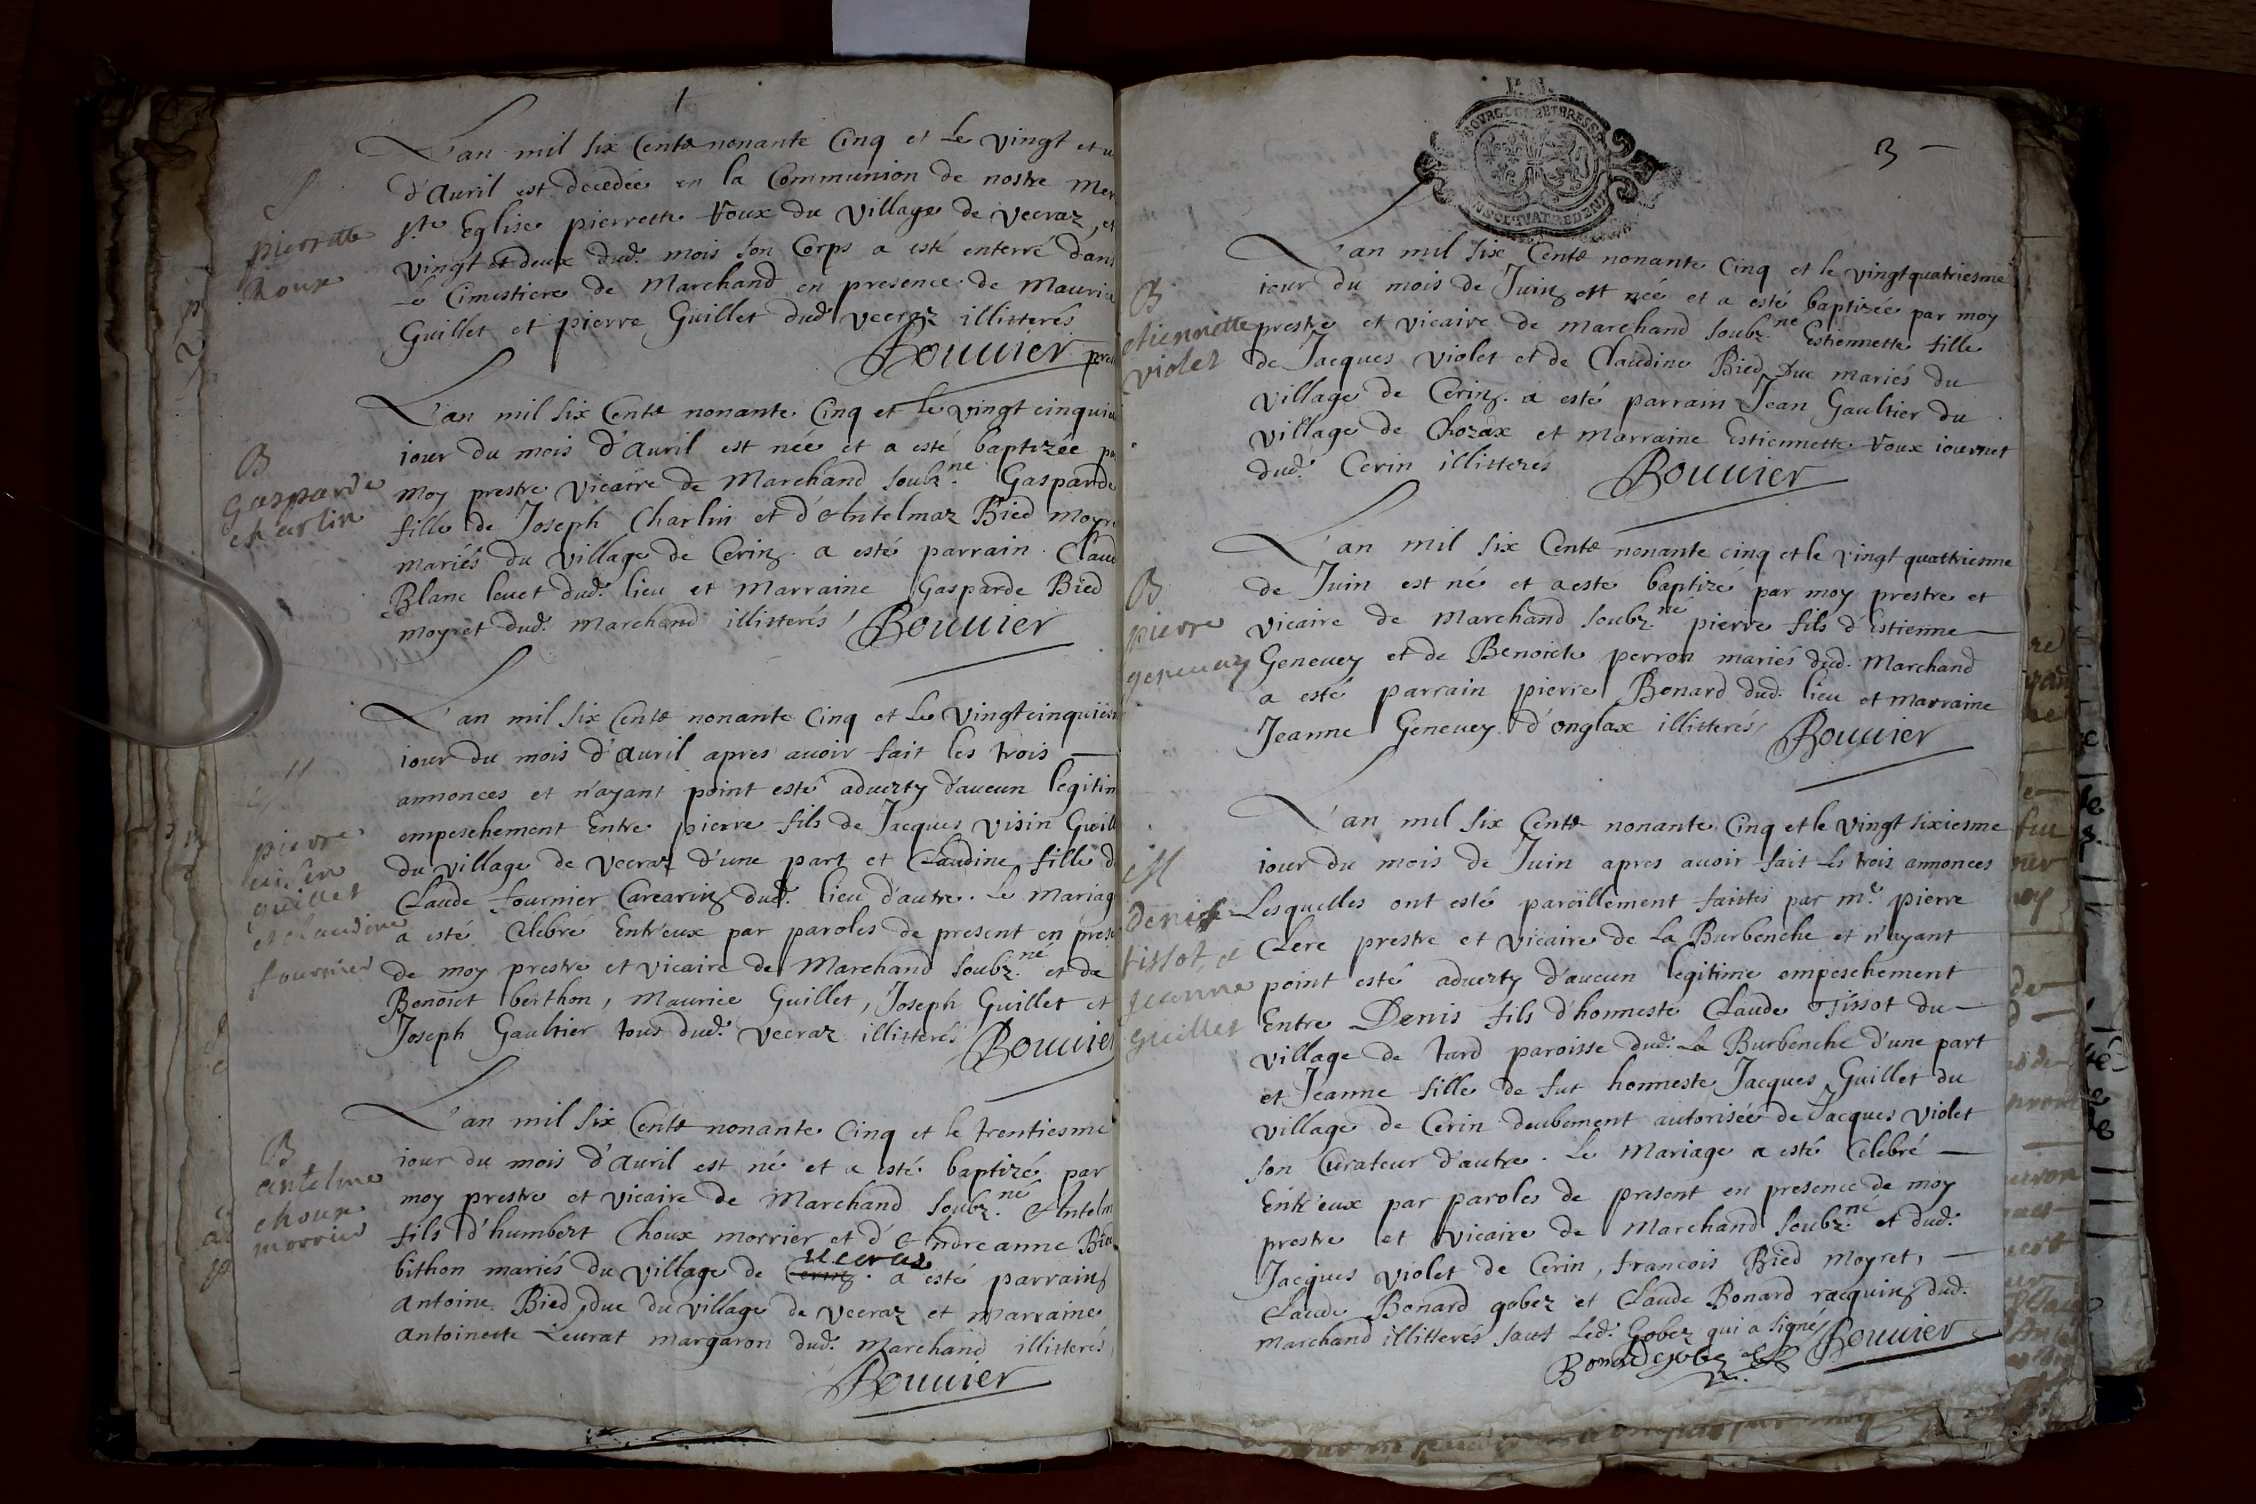 L'an mil six Cents nonante Cinq et Le vingt et u
d'Auril est decedée en la Communion de nostre Mer
Ste Eglise pierrette Roux du village de vecraz, et
vingt et deux dud. mois son Corps a esté enterré dans
Le Cimestiere de Marchand en presence de Maurice
Guillet et pierre Guillet dud vecraz illitterés
Bouuier
pierrette
Roux
L'an mil six Cents nonante Cinq et le vingt cinquie
iour du mois d'Auril est née et a esté baptizée pa
moy prestre vicaire de Marchand soubz.né Gasparde
fille de Joseph Charlin et d'Antelmaz Bied moyre
mariés du village de Cerin. a esté parrain Claud
Blanc leuet dud. lieu et Marraine Gasparde Bied
moyret dud. Marchand illitterés Bouuier
B
Gasparde
charlin
L'an mil six Cents nonante Cinq et Le Vingt cinquiém
iour du mois d'Auril apres auoir fait les trois
annonces et n'ayant point esté aduerty d'aucun legitim
empeschement Entre pierre fils de Jacques visin Guill
du village de vecraz d'une part et Claudine fille d
Claude fournier Carcarin dud. lieu d'autre. Le Mariag
a esté Celebré Entr'eux par paroles de present en prese
de moy prestre et vicaire de Marchand soubz.né et de
Benoict berthon, Maurice Guillet, Joseph Guillet et
Joseph Gaultier tous dud. vecraz illitterés Bouuier
M
pierre
uisin
guillet
et claudine
fournier
L'an mil six Cents nonante Cinq et le trentiesme
iour du mois d'Auril est né et a esté baptizé par
moy prestre et vicaire de Marchand soubz.né Antelm
fils d'humbert Choux morrier et d'Andreanne Bied
bithon mariés du village de Cerin uecras. a esté parrain
Antoine Bied duc du village de vecraz et marraine
Antoinette Leurat margaron dud. Marchand illitterés
Bouuier
B
antelme
choux
morrier
3
BOURGOGNE ET BRESSE
L'an mil six Cents nonante Cinq et le vingtquatriesme
iour du mois de Juin est née et a esté baptizée par moy
prestre et vicaire de Marchand soubz.né Estiennette fille
de Jacques violet et de Claudine Bied duc mariés du
village de Cerin. a esté parrain Jean Gaultier du
village de Chozax et marraine Estiennette Roux iournet
dud. Cerin illitterés Bouuier
B
etiennette
violet
L'an mil six Cents nonante cinq et le vingt quattriesme
de Juin est né et a esté baptizé par moy prestre et
vicaire de Marchand soubz.né pierre fils d'Estienne
Geneuey et de Benoicte perron mariés dud. Marchand
a esté parrain pierre Bonard dud. lieu et Marraine
Jeanne Geneuey d'onglax illitterés Bouuier
B
pierre
geneuay
L'an mil six Cents nonante Cinq et le vingt sixiesme
iour du mois de Juin apres auoir fait les trois annonces
Lesquelles ont esté pareillement faittes par m.e pierre
Clere prestre et vicaire de La Burbenche et n'ayant
point esté aduerty d'aucun legitime empeschement
Entre Denis fils d'honneste Claude Tissot du
village de tard paroisse dud. La Burbenche d'une part
et Jeanne fille de fut honneste Jacques Guillet du
village de Cerin deubement autorisée de Jacques violet
son Curateur d'autre. Le Mariage a esté Celebré
Entr'eux par paroles de present en presence de moy
prestre et vicaire de Marchand soubz.né et dud.
Jacques violet de Cerin, francois Bied moyret,
Claude Bonard gobez et Claude Bonard racquin dud.
Marchand illitterés sauf led. Gobez qui a signé Bouuier
Bonard gobez
M
Denis
tissot, et
jeanne
guillet